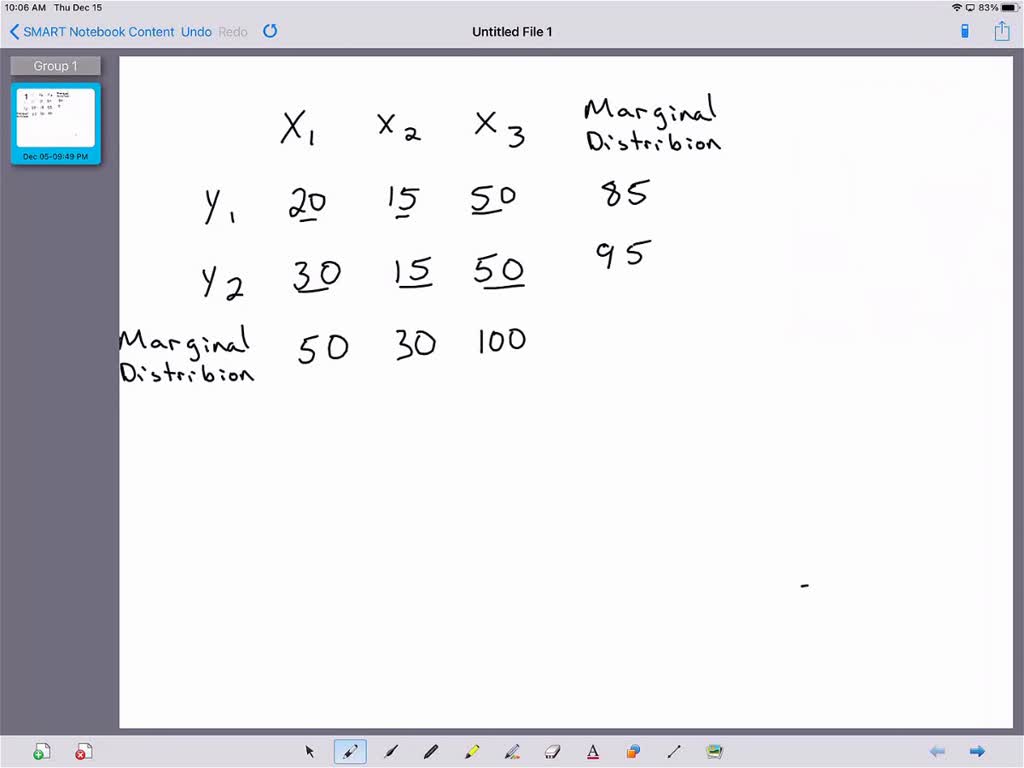 10:06 AM Thu Dec 15
83%
SMART Notebook Content Undo Redo
Untitled File 1
Group 1
Dec 05-09:49 PM
X1 X2 X3 Marginal
Distribion
Y1 20 15 50 85
Y2 30 15 50 95
Marginal
Distribion 50 30 100
A